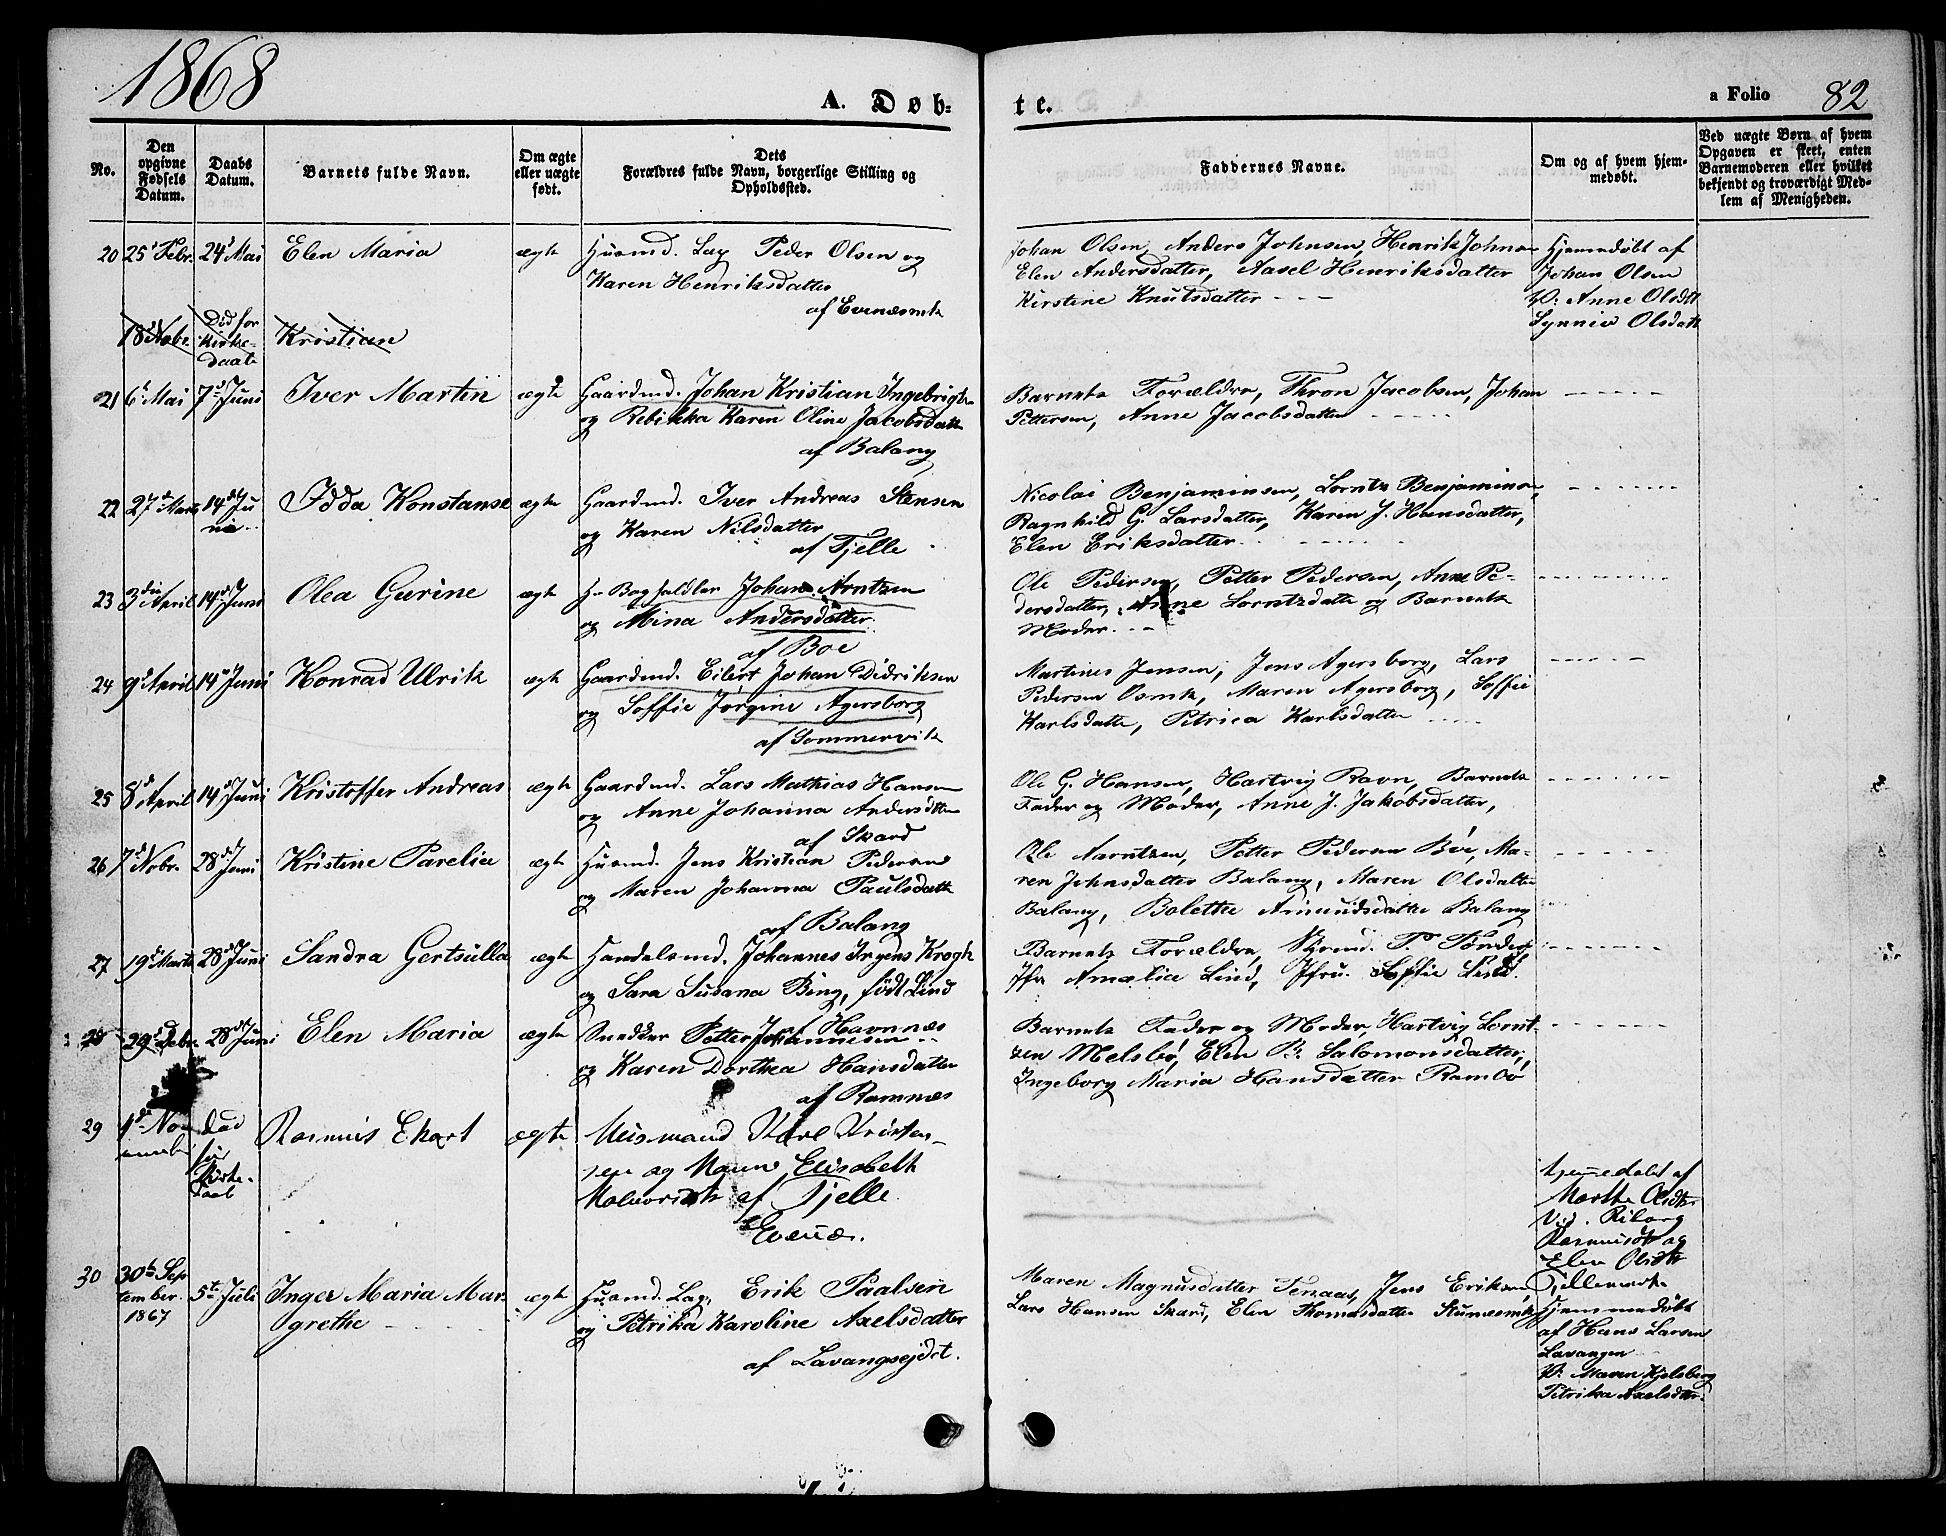 1868
A. Døb-
te.
a Folio 82
No.
Den opgivne Fødsels Datum.
Daabs Datum.
Barnets fulde Navn.
Om ægte eller uægte født.
Dets Forældres fulde Navn, borgerlige Stilling og Opholdssted.
Faddernes Navne.
Om og af hvem hjemmedøbt.
Ved uægte Børn af hvem Opgaven er skeet, enten Barnemoderen eller hvilket bekjendt og troværdigt Medlem af Menigheden.
20 25 Febr. 24 Mai Elen Maria ægte Husmd. Lap Peder Olsen og
Karen Henriksdatter
af Evenæsmk
Johan Olsen, Anders Johnsen, Henrik Johns
Elen Andersdatter, Aasel Henriksdatter
Kirstine Knutsdatter - - -
Hjemmedøbt af
Johan Olsen
V: Anne Olsdtt
Synnia Olsdatt
18 Nobr. Død før Kirkedaab Kristian
21 6 Mai 7 Juni Iver Martin ægte Gaardmd. Johan Kristian Ingebrigts
og Rebikka Karen Oline Jacobsdatt
af Balang
Barnets Forældre, Thron Jacobsen, Johan
Pettersen, Anne Jacobsdatter
22 27 Marts 14de Juni Idda Konstanse ægte Gaardmd. Iver Andreas Stensen
og Karen Nilsdatter
af Tjelle
Nicolai Benjaminsen, Lorntz Benjaminsen,
Ragnhild G. Larsdatter, Karen J. Hansdatter,
Elen Eriksdatter
23 3die April 14de Juni Olea Gurine ægte Hr Bogholdler Johan Arntzen
og Mina Andersdatter
af Boe
Ole Pedersen, Petter Pedersen, Anne Pe-
dersdatter, Anne Lorntzdatte og Barnets
Moder. - -
24 9 April 14 Juni Konrad Ulrik ægte Gaardmd. Eilert Johan Didriksen
og Soffie Jørgine Agersborg
af Sommervik
Martines Jensen, Jens Agersborg, Lars
Pedersen Osmk, Maren Agersborg, Soffie
Karlsdatte, Petrica Karlsdatte
25 8 April 14 Juni Kristoffer Andreas ægte Gaardmd. Lars Mathias Hansen
og Anne Johanna Andersdtter
af Skard
Ole G. Hansen, Hartvig Ravn, Barnets
Fader og Moder, Anne J. Jakobsdatter,
26 7 Nobr. 28 Juni Kristine Parelia ægte Husmd. Jens Kristian Pedersen
og Maren Johanna Paulsdatt
af Balang
Ole Aarntzen, Petter Pedersen Bøe, Ma-
ren Johnsdatter Balang, Maren Olsdatter
Balang, Bolethe Amundsdatte Balang
27 19 Marts 28 Juni Sandra Gertsulla ægte Handelsmd. Johannes Irgens Krogh
og Sara Susana Bing, født Lind
af Havnnæs
Barnets Forældre, Styrmd. P. Tønder,
Jfr Amalia Lind, Jfru. Soffie Lind.
28 29 Debr. 28 Juni Elen Maria ægte Snedker Petter Johannesen
og Karen Dorthea Hansdatter
af Ramnæs
Barnets Fader og Moder, Hartvig Lornt-
zen Melsbø, Elen B. Salomonsdatter,
Ingeborg Maria Hansdatter Rambø
29 1de November Død før Kirkedaab Rasmus Ekart ægte Huismand Karl Kristen-
sen og Maren Elisabeth
af Tjelle
Evenæs.
hjemmedøbt af
Marthe Olsdtr
Vid. Riborg
Rasmusdt og
Elen Olsdtr
30 30te September 1867 5te Juli Inger Maria Mar-
grethe
ægte Husmd. Lap, Erik Paalsen
og Petrika Karoline Axelsdatter
af Lavangsejdet.
Maren Magnusdatter Tenaas, Jens Eriksen,
Lars Hansen Skard, Elen Thomasdatter
Hjemmedøbt
af Hans Larsen
Lavangen
V: Maren Kjelsberg
Petrika Axelsdtr.